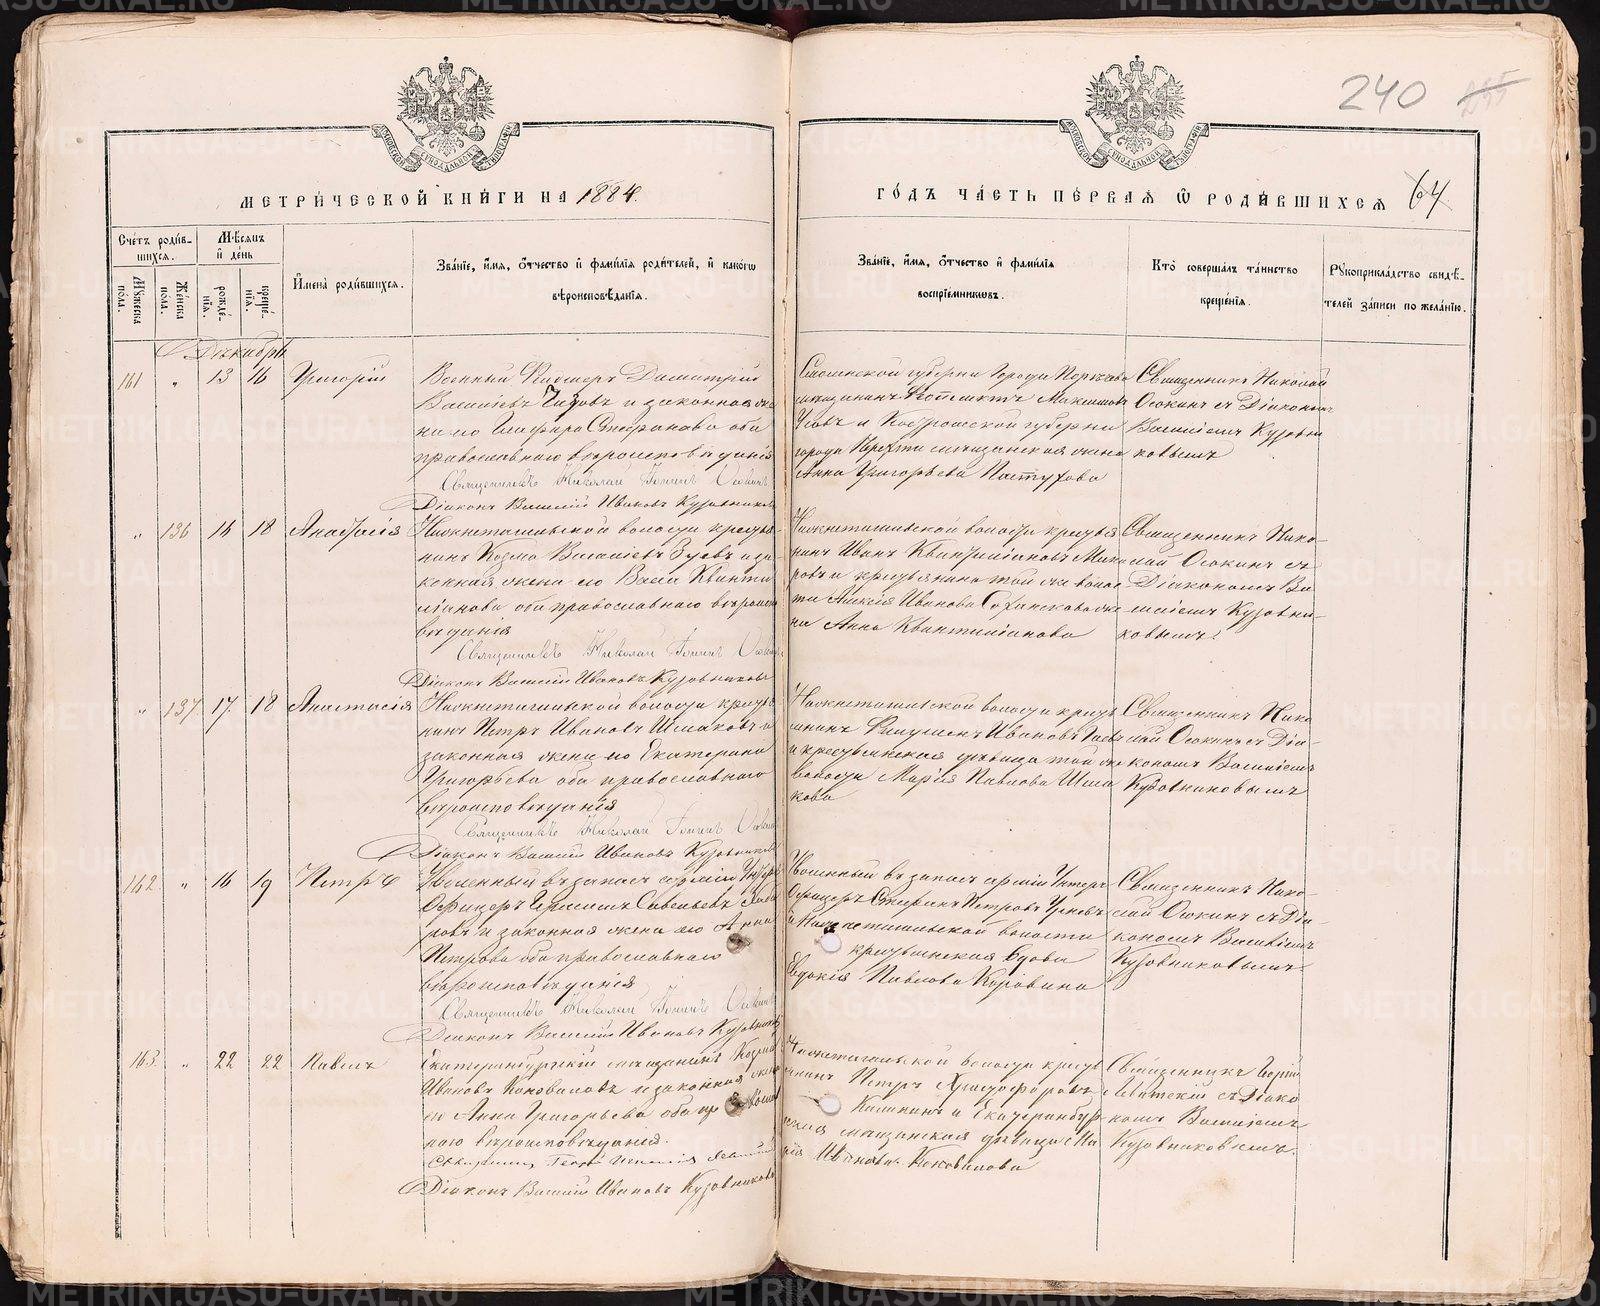 240
МЕТРИЧЕСКОЙ КНИГИ НА 1884.
ГОДЪ ЧАСТЬ ПЕРВАЯ Ѿ РОДИВШИХСЯ
64
Счетъ родив-
шихся.
Мѣсяцъ
и день
Мужеска пола.
Женска пола.
рожде-
нія.
креще-
нія.
Имена родившихся.
Званіе, имя, отчество и фамилія родителей, и какогѡ
вѣроисповѣданія.
Званіе, имя, отчество и фамилія
воспріемниковъ.
Кто совершалъ таинство
крещенія.
Рукоприкладство свидѣ-
телей записи по желанію.
Декабрь
161 " 13 16 Григорій
Военный Димитрій
Василіевъ и законная же
на его Стефанова оба
православнаго вѣроисповѣданія
Священникъ Николай Осокинъ
Діаконъ Василій Ивановъ Кузовниковъ
Смоленской губерніи города
Максимовъ
Усовъ и Костромской губерніи
города Нерехты мѣщанская жена
Анна Григорьева Пастухова
Священникъ Николай
Осокинъ съ Діакономъ
Василіемъ Кузовни
ковымъ
" 136 16 18 Анастасія
Нижнетагильской волости крестья-
нинъ Козма Василіевъ Зуевъ и за-
конная жена его Васса Квинти
ліанова оба православнаго вѣроиспо
вѣданія
Священникъ Николай Осокинъ
Діаконъ Василій Ивановъ Кузовниковъ
Нижнетагильской волости крестья
нинъ Иванъ Квинтиліановъ
и крестьянина той же волос
ти Алексія Иванова жe
на Анна Квинтиліанова
Священникъ Нико-
лай Осокинъ съ
Діакономъ Ва
силіемъ Кузовни-
ковымъ
" 137 17 18 Анастасія
Нижнетагильской волости крестья
нинъ Петръ Ивановъ Шмаковъ и
законная жена его Екатерина
Григорьева оба православнаго
вѣроисповѣданія
Священникъ Николай Осокинъ
Діаконъ Василій Ивановъ Кузовниковъ
Нижнетагильской волости кресть
янинъ Ивановъ
и крестьянская дѣвица той же
волости Марія Павлова Шма
кова
Священникъ Нико
лай Осокинъ съ Діа-
кономъ Василіемъ
Кузовниковымъ
162 " 16 19 Петръ
Уволенный въ запасъ арміи Унтеръ
Офицеръ Савельевъ
и законная жена его Анна
Петрова оба православнаго
вѣроисповѣданія
Священникъ Николай Осокинъ
Діаконъ Василій Ивановъ Кузовниковъ
Уволенный въ запасъ арміи Унтеръ
Офицеръ Стефанъ Петровъ
и Нижнетагильской волости
крестьянская вдова
Евдокія Павлова Коровина
Священникъ Нико-
лай Осокинъ съ Діа-
кономъ Василіемъ
Кузовниковымъ
163. " 22 22 Павелъ
Екатеринбургскій мѣщанинъ Козма
Ивановъ Коновалов и законная жена
его Анна Григорьева оба православ
наго вѣроисповѣданія.
Священникъ Георгій Левитскій
Діаконъ Василій Ивановъ Кузовниковъ
Нижнетагильской волости кресть
янинъ Петръ Христофоровъ
Калининъ и Екатеринбург
ская мѣщанская дѣвица Ма
рія Иванова Коновалова
Священникъ Георгій
Левитскій съ Діако
номъ Василіемъ
Кузовниковымъ.
METRIKI.GASO-URAL.RU